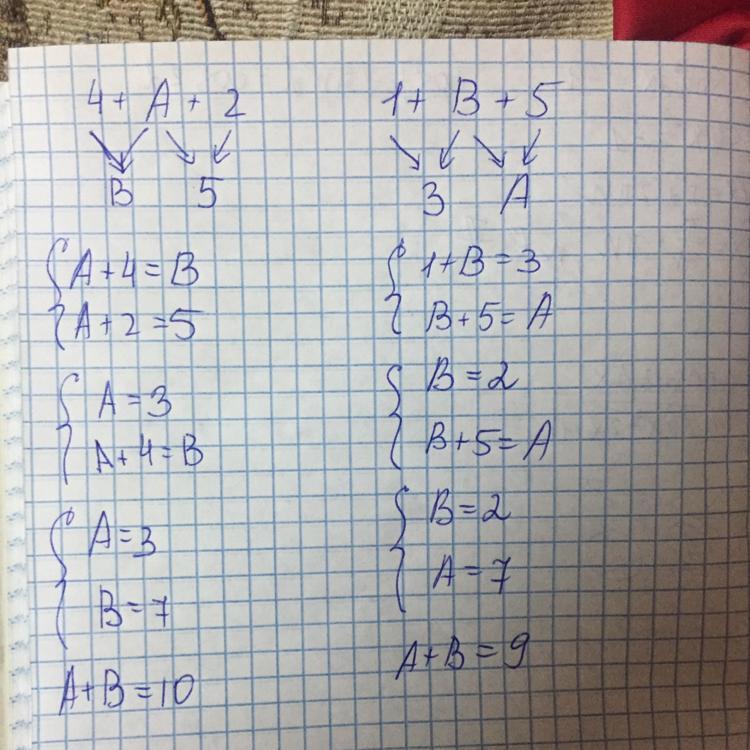 4 + A + 2
B 5
A + 4 = B
A + 2 = 5
A = 3
A + 4 = B
A = 3
B = 7
A + B = 10
1 + B + 5
3 A
1 + B = 3
B + 5 = A
B = 2
B + 5 = A
B = 2
A = 7
A + B = 9